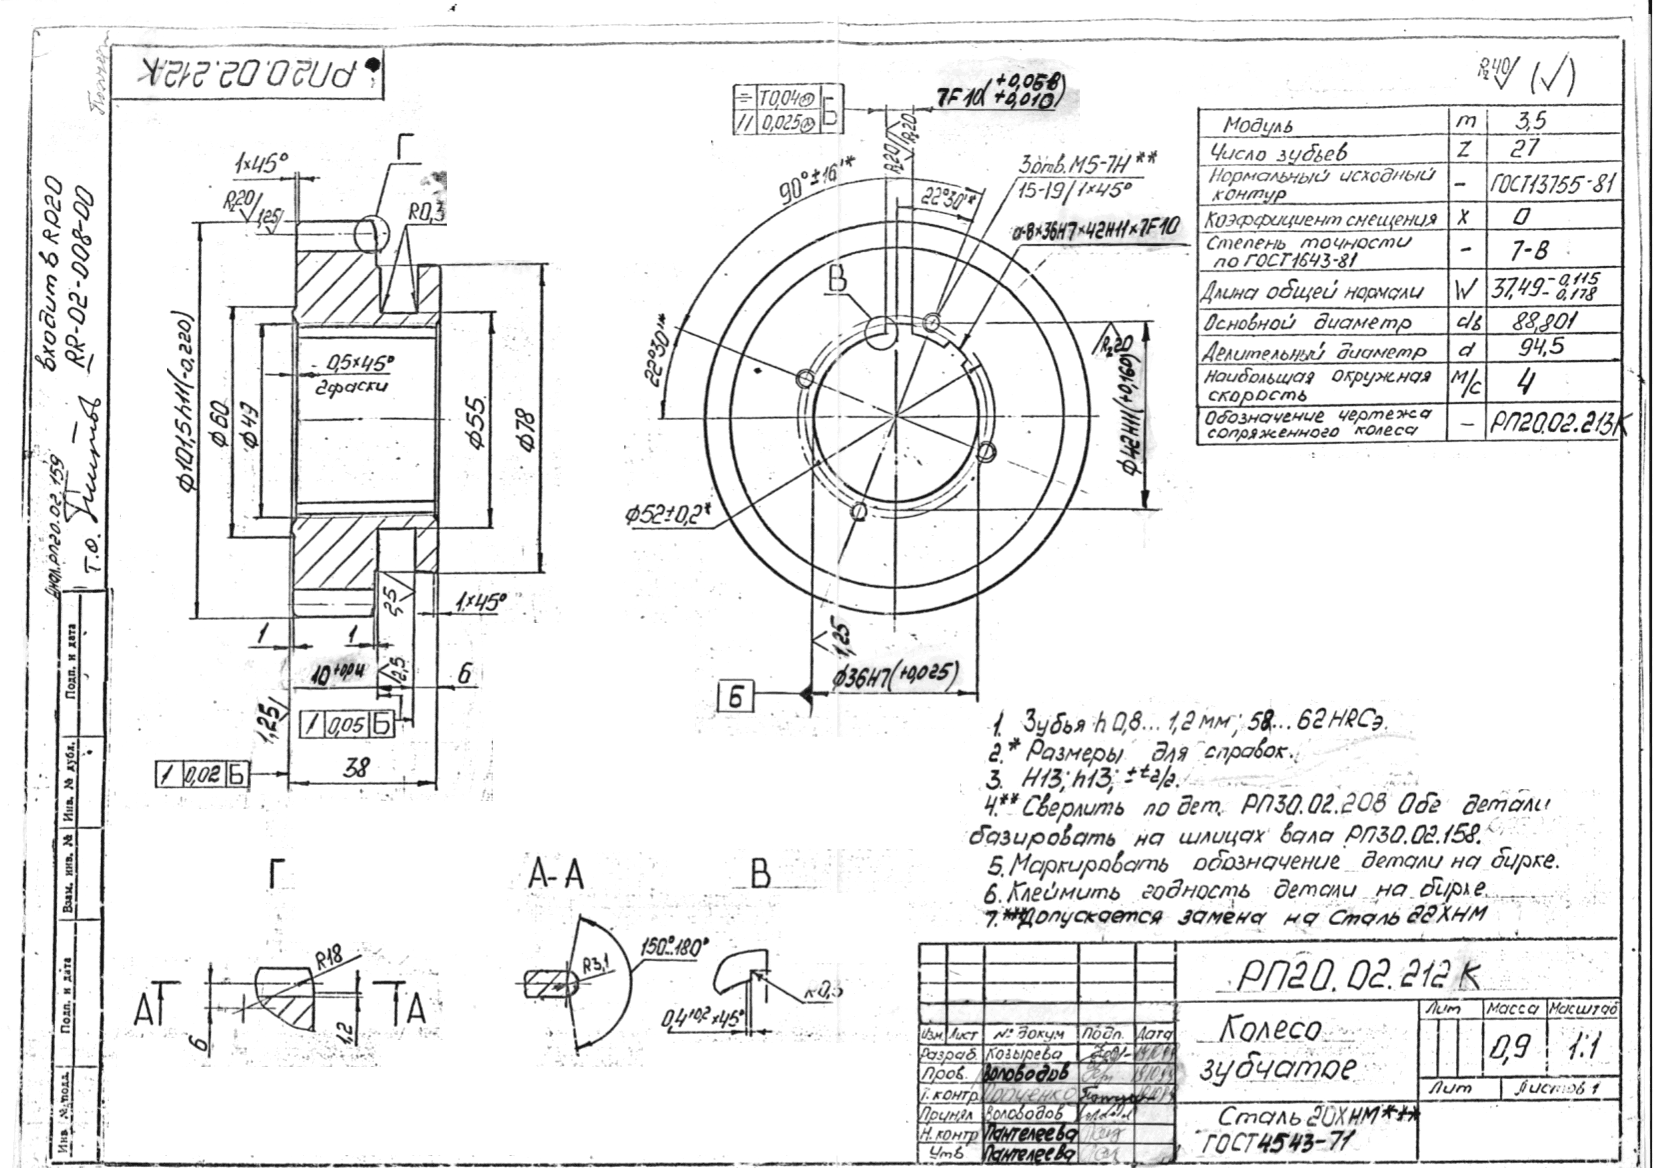 РП20.02.212К
входит в RP20
RR-02-008-00
Т.О.
РП20.02.159
1×45°
Г
Rz20
1,25
R0,3
ϕ101,5h11(-0,220)
ϕ60
ϕ49
0,5×45°
2 фаски
ϕ55
ϕ78
2,5
1×45°
1
1
10+0,11
2,5
6
1,25
⊥ 0,05 Б
⊥ 0,02 Б
38
= Т0,04 Ⓜ Б
// 0,025 Ⓜ
7F10(+0,058 +0,013)
Rz20
Rz20
90°±16'*
22°30'*
3 отв. М5-7Н**
15-19/1×45°
d-8×36Н7×42Н11×7F10
В
22°30'*
Rz20
ϕ42Н11(+0,160)
ϕ52±0,2*
1,25
ϕ36Н7(+0,025)
Б
Rz40 (√)
Модуль m 3,5
Число зубьев Z 27
Нормальный исходный контур – ГОСТ13755-81
Коэффициент смещения X 0
Степень точности по ГОСТ1643-81 – 7-В
Длина общей нормали W 37,49 -0,115 -0,178
Основной диаметр db 88,801
Делительный диаметр d 94,5
Наибольшая окружная скорость м/с 4
Обозначение чертежа сопряженного колеса – РП20.02.213К
1. Зубья h 0,8...1,2 мм; 58...62 HRCэ.
2.* Размеры для справок.
3. Н13; h13; ±t2/2.
4.** Сверлить по дет. РП30.02.208 Обе детали
базировать на шлицах вала РП30.02.158.
5. Маркировать обозначение детали на бирке.
6. Клеймить годность детали на бирке.
7.*** Допускается замена на Сталь 22ХНМ
Г
А-А
В
R18
А
А
6
1,2
R3,1
150°..180°
0,4+0,2×45°
Подп. и дата
Инв. № дубл.
Взам. инв. №
Подп. и дата
Инв. № подл.
РП20.02.212К
Колесо
зубчатое
Лит Масса Масштаб
0,9 1:1
Лит Листов 1
Сталь 20ХНМ***
ГОСТ 4543-71
Изм Лист № докум Подп. Дата
Разраб Козырева
Пров. Воловодов
Т. контр
Принял Воловодов
Н. контр Пантелеева
Утв Пантелеева